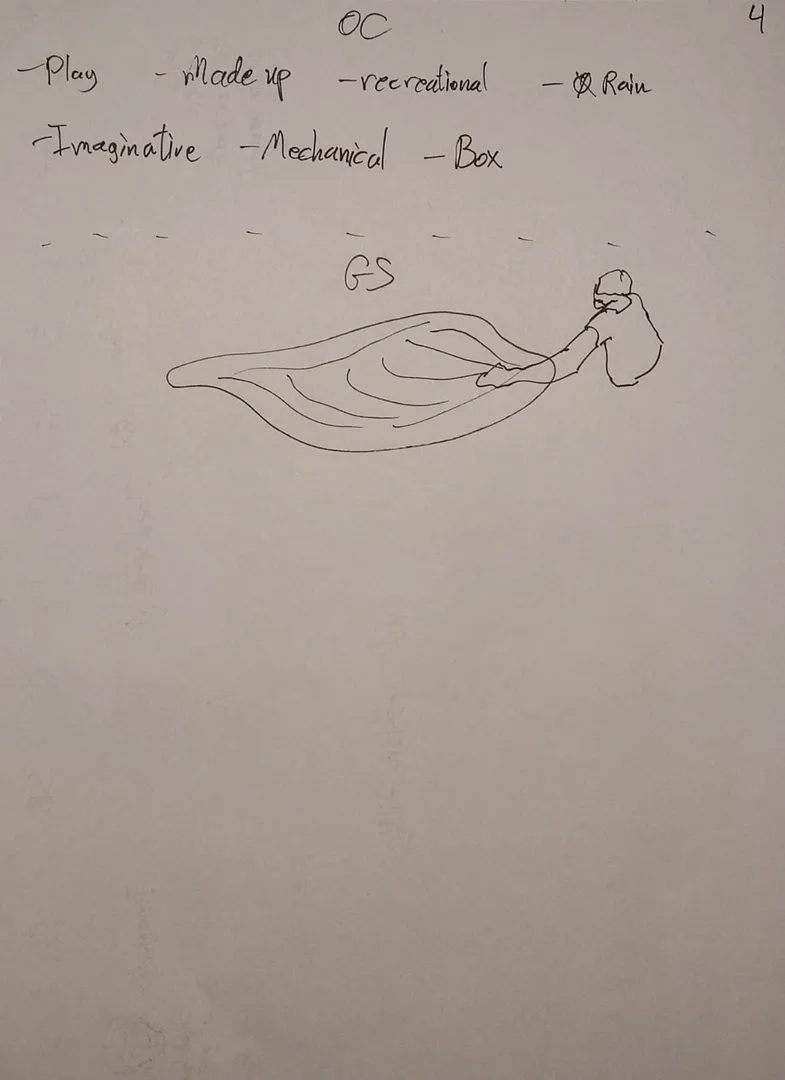 OC 4
-Play - Made up -recreational - Rain
-Imaginative -Mechanical - Box
GS